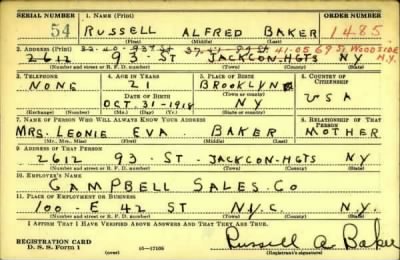 SERIAL NUMBER 1. NAME (Print) ORDER NUMBER
54 RUSSELL ALFRED BAKER 1485
(First) (Middle) (Last)
2. ADDRESS (Print) 41-05 69 St WOODSIDE N.Y.
2612 93 ST JACKSON-HGTS NY
(Number and street or R. F. D. number) (Town) (County) (State)
3. TELEPHONE 4. AGE IN YEARS 5. PLACE OF BIRTH 6. COUNTRY OF CITIZENSHIP
NONE 21 BROOKLYN
DATE OF BIRTH (Town or county) USA
OCT. 31-1918 NY
(Exchange) (Number) (Mo.) (Day) (Yr.) (State or country)
7. NAME OF PERSON WHO WILL ALWAYS KNOW YOUR ADDRESS 8. RELATIONSHIP OF THAT PERSON
MRS. LEONIE EVA BAKER MOTHER
(Mr., Mrs., Miss) (First) (Middle) (Last)
9. ADDRESS OF THAT PERSON
2612 93 - ST - JACKSON-HGTS NY.
(Number and street or R. F. D. number) (Town) (County) (State)
10. EMPLOYER'S NAME
CAMPBELL SALES. CO
11. PLACE OF EMPLOYMENT OR BUSINESS
100 - E 42 ST N.Y.C. N.Y.
(Number and street or R. F. D. number) (Town) (County) (State)
I AFFIRM THAT I HAVE VERIFIED ABOVE ANSWERS AND THAT THEY ARE TRUE.
REGISTRATION CARD
D. S. S. Form 1 (over) 16-17105 Russell A. Baker
(Registrant's signature)